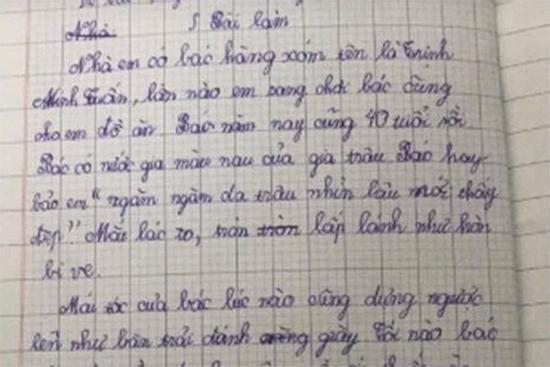 Nhà Bài làm
Nhà em có bác hàng xóm tên là Trinh
Minh Tuấn, lần nào em sang chơi bác cũng
cho em đồ ăn Bác năm nay cũng 40 tuổi rồi
Bác có nước gia màu nau của gia trâu Bác hay
bảo em "ngăm ngăm da trâu nhìn lâu mới thấy
đẹp". Mắt bác to, tròn lấp lánh như hòn
bi ve.
Mái tóc của bác lúc nào cũng dựng ngược
lên như bàn trải đánh giày Tối nào bác